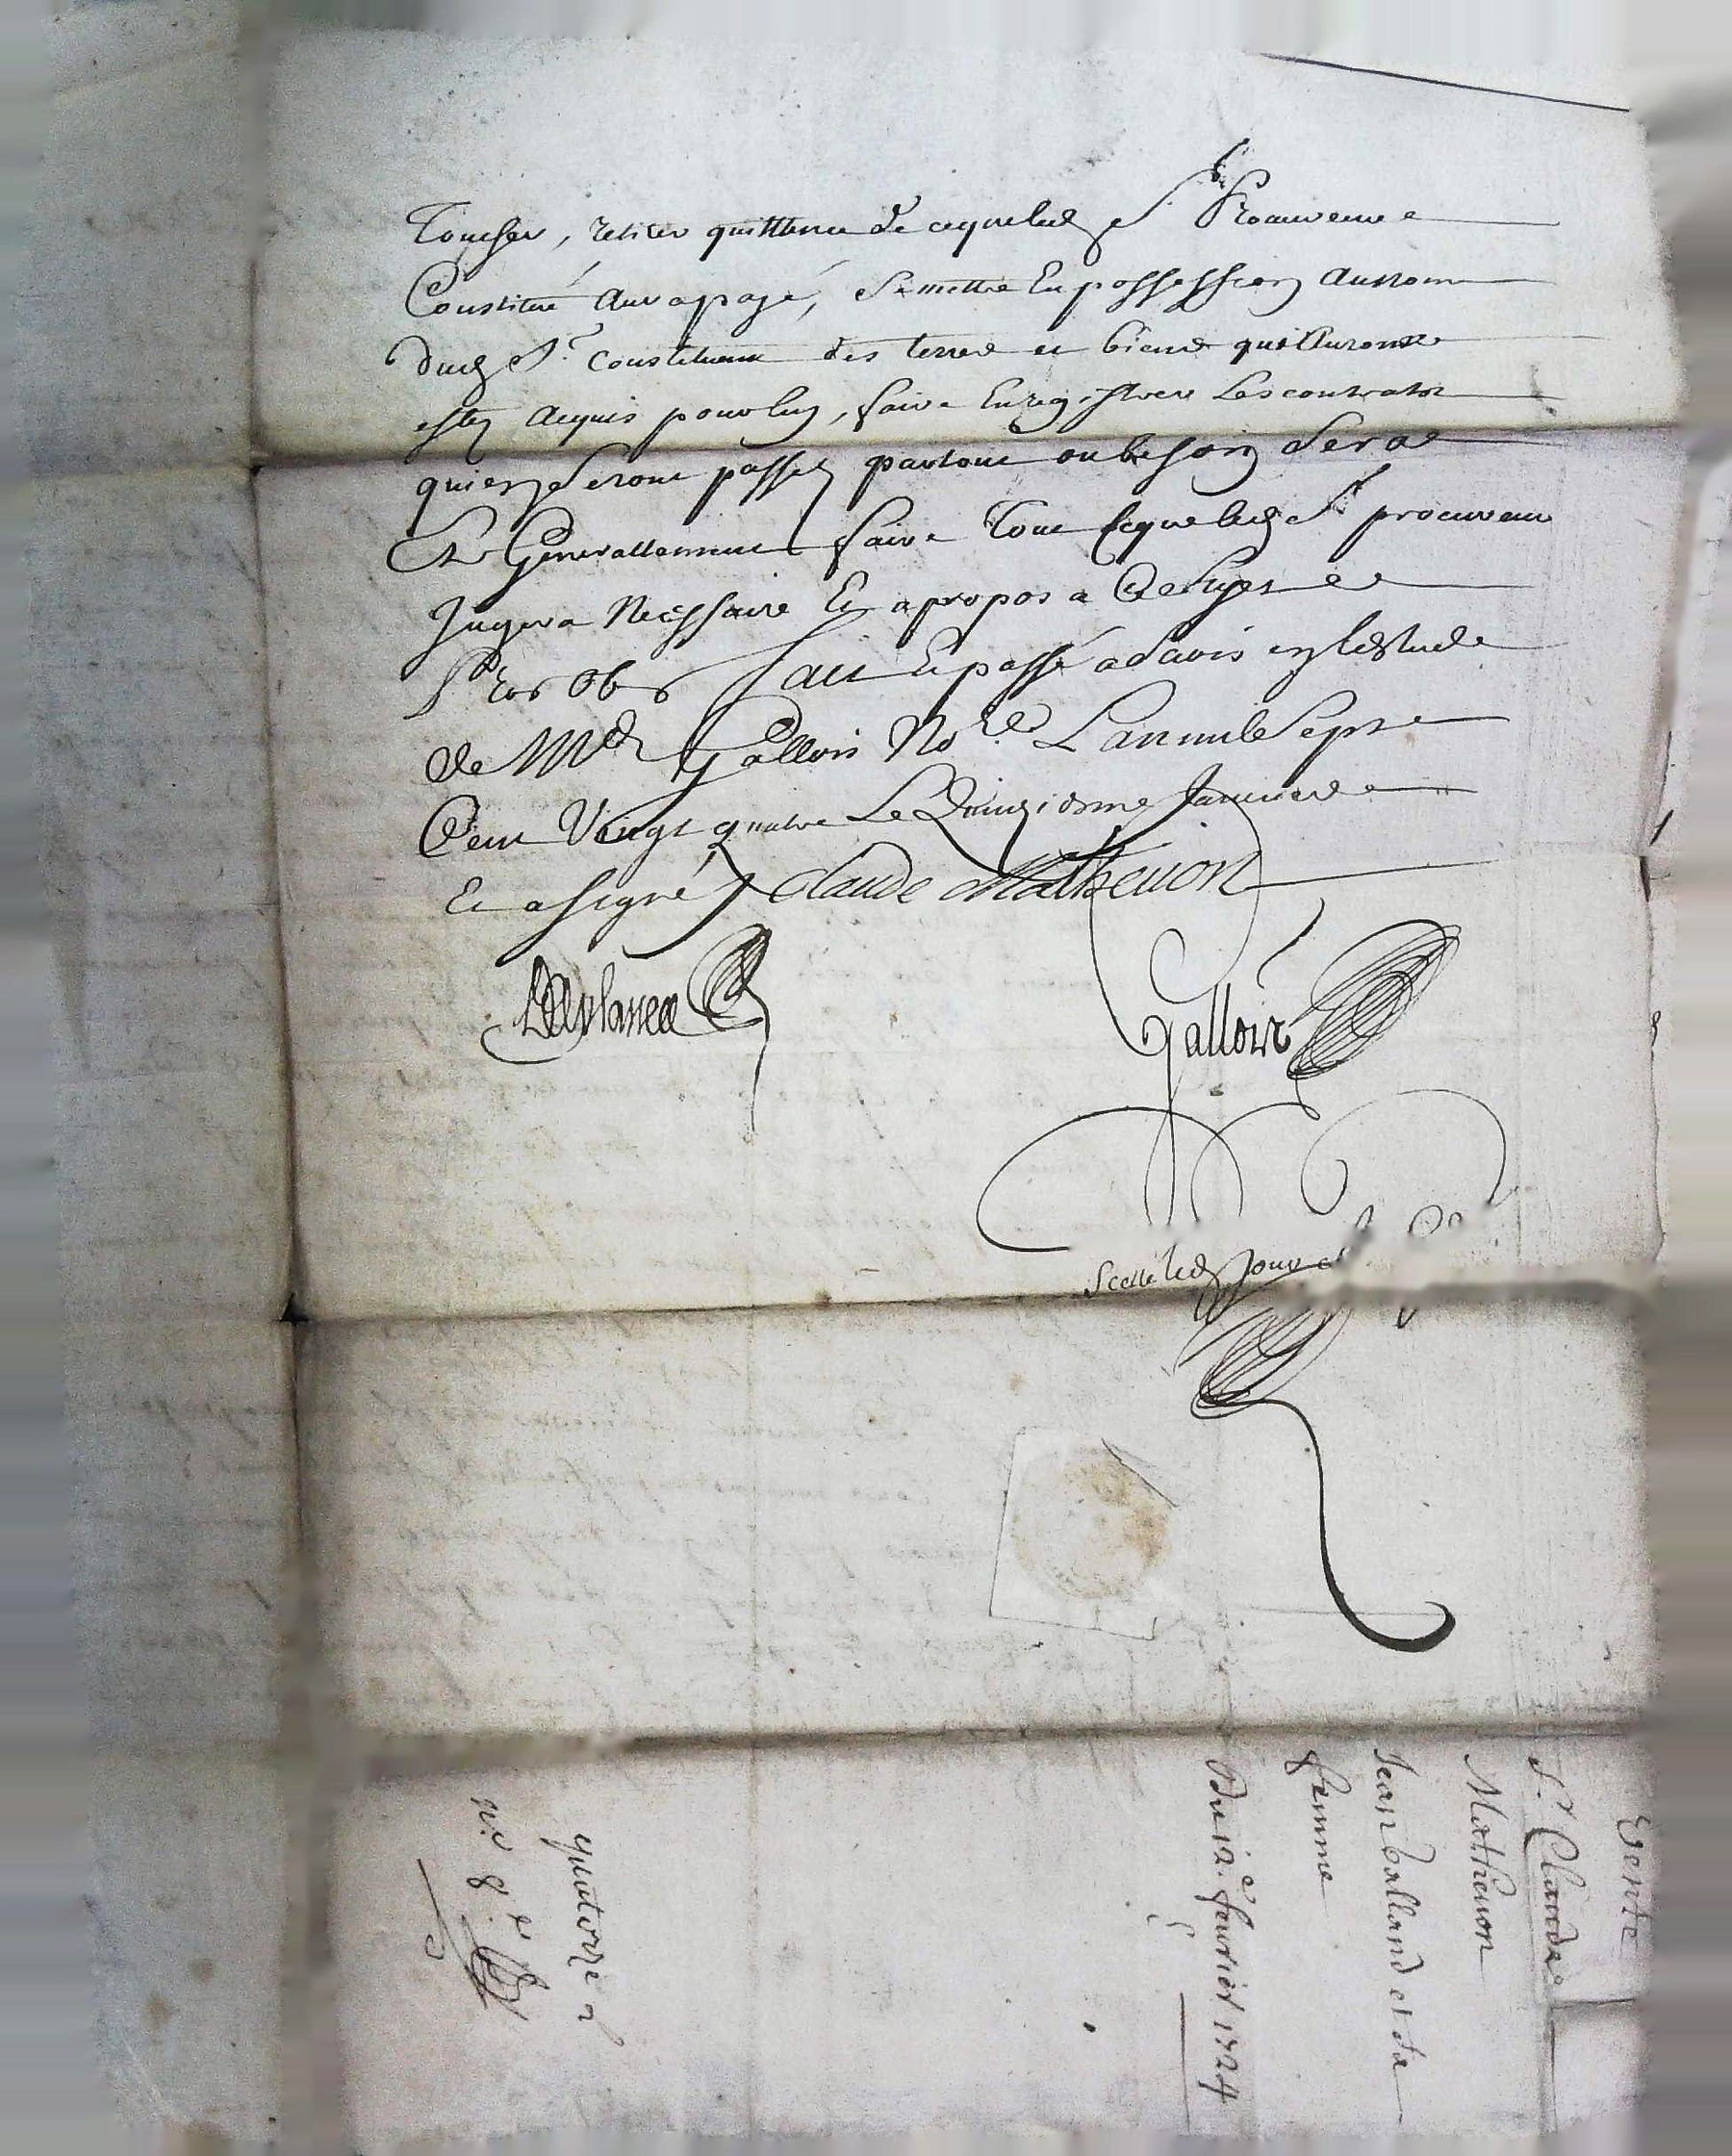 Toucher, retirer quittance de ceque led. Sr. Procureur
Constitué aura payé, se mettre En possession au nom
dud. Sr. Constituant des terres et biens quil auront
estez acquis pour luy, faire Enregistrer Les contrats
qui en seront passez partout ou besoin sera
Et Generallement faire Tout ceque led. Sr procureur
Jugera Necessaire Et apropos a Ce sujet
Fait Et passé a en lestude
de Me Gallois Nore. L'an mil sept
Cent Vingt quatre Le Quinziesme Janvier
Et a signé / Claude Mathevon
Gallois
Scellé led. Jour et
Vente
Sr. Claude
Mathevon
Jean Balland et sa
femme
Du 12e. fevrier 1724
quatorze
no. 8.